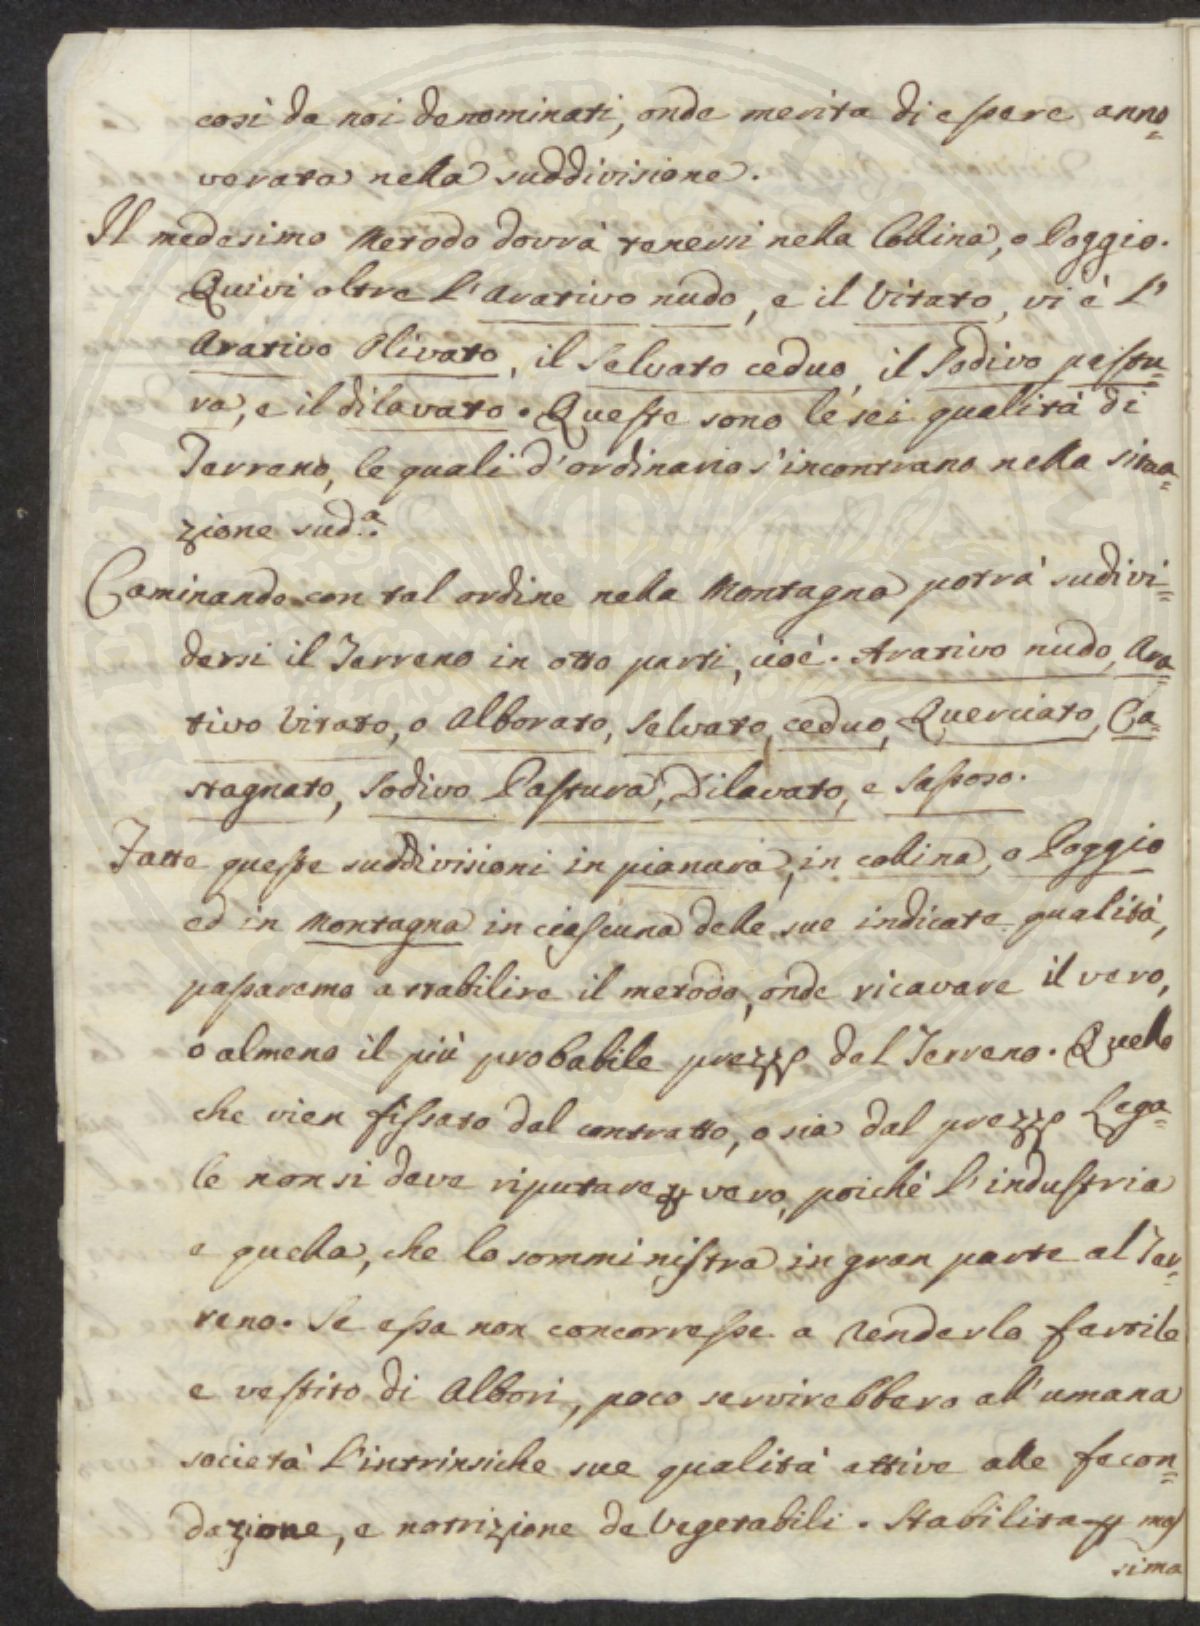 così da noi denominati, onde merita di essere anno=
verata nella suddivisione.
Il medesimo Metodo dovrà tenersi nella Collina, o Poggio.
Quivi oltre l'Arativo nudo, e il Vitato, vi è l'
Arativo Olivato, il Selvato ceduo, il Sodivo pastu=
ra, e il dilavato. Queste sono le sei qualità di
Terreno, le quali d'ordinario s'incontrano nella situa=
zione sud.a
Caminando con tal ordine nella Montagna potrà sudivi=
dersi il Terreno in otto parti, cioè. Arativo nudo, Ara=
tivo Vitato, o Alborato, Selvato ceduo, Querciato, Ca=
stagnato, Sodivo Pastura, Dilavato, e Sassoso.
Fatte queste suddivisioni in pianura, in collina, o Poggio
ed in Montagna in ciascuna delle sue indicate qualità,
passaremo a stabilire il metodo, onde ricavare il vero,
o almeno il più probabile prezzo del Terreno. Quello
che vien fissato dal contratto, o sia dal prezzo Lega=
le non si deve riputare p vero, poichè l'industria
e quella, che lo somministra in gran parte al Ter=
reno. Se essa non concorresse a renderlo fertile
e vestito di Albori, poco servirebbero all'umana
società l'intrinsiche sue qualità attive alle fecon=
dazione, e notrizione de Vegetabili. Stabilita p mas
sima